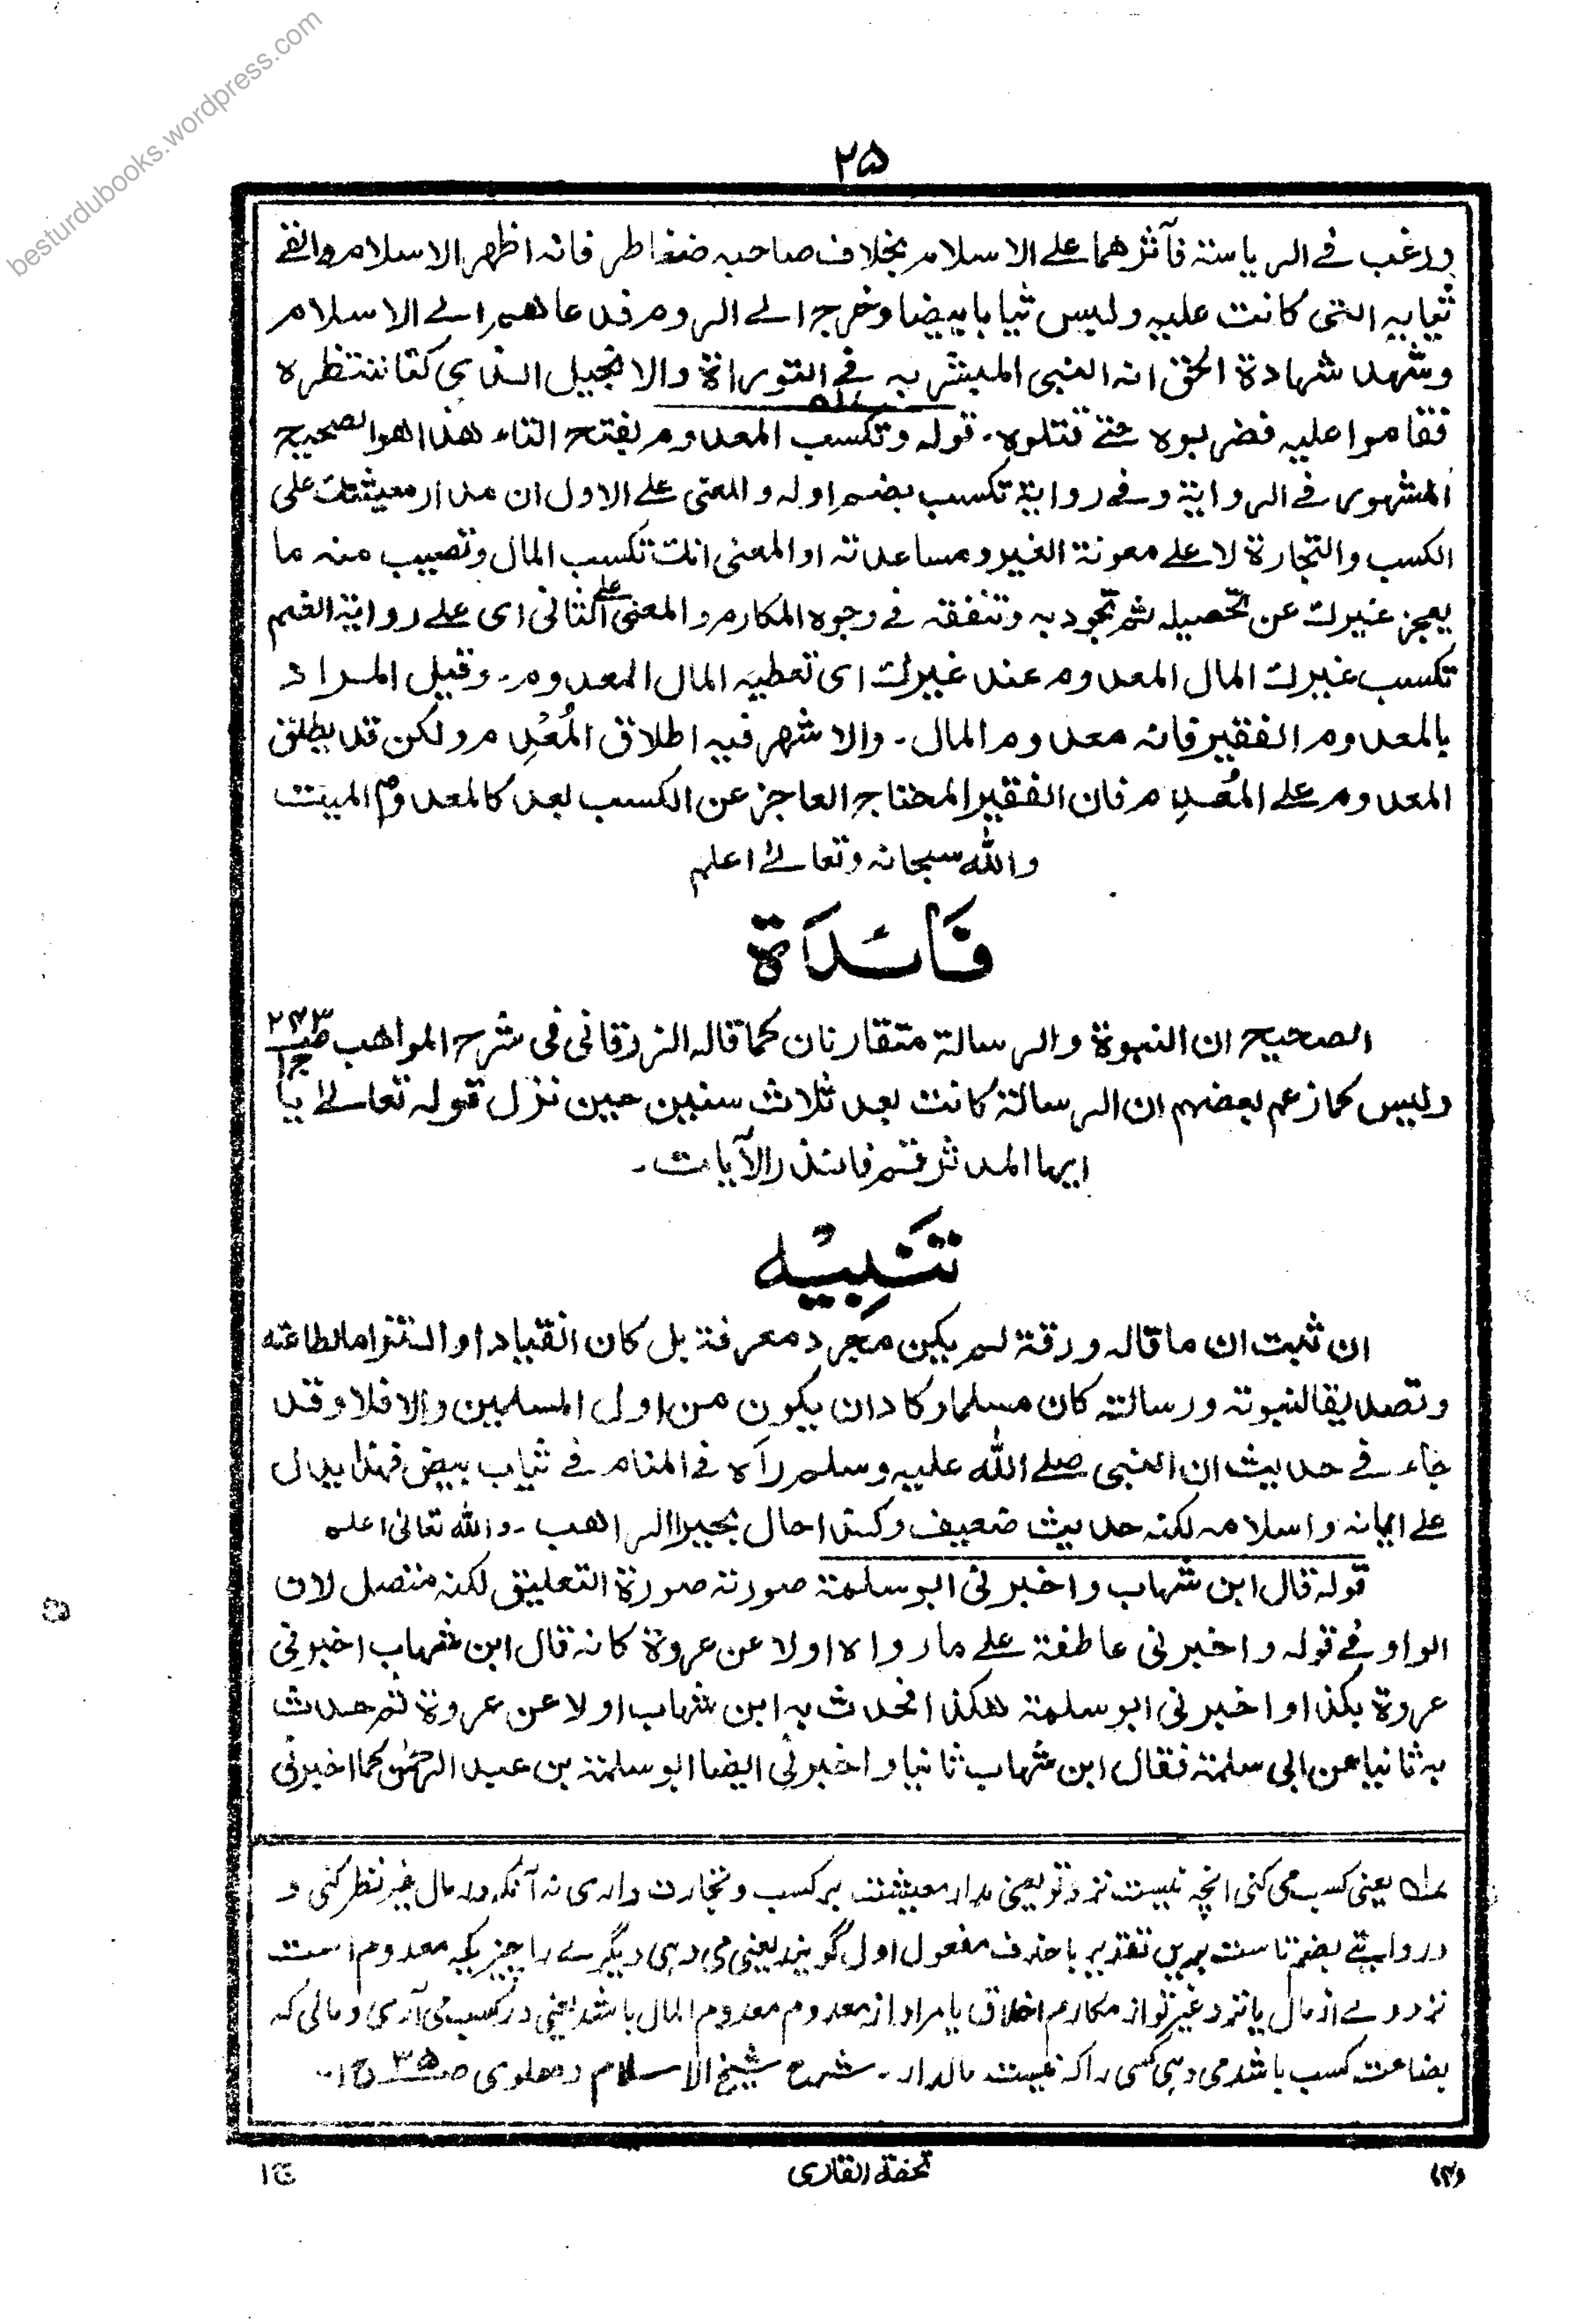 besturdubooks.wordpress.com
۲۵
ورغب فے الریاستہ فآثرهما علے الاسلام بخلاف صاحبہ ضغاطر فانہ اظهر الاسلام والقے
ثیابہ التی کانت علیہ ولبس ثیابا بیضا وخرج الے الروم فدعاهم الے الاسلام
وشهد شهادة الحق انہ النبی المبشر بہ فے التوراة والانجیل الذی کنا ننتظرہ
فقاموا علیہ فضربوہ حتے قتلوہ۔ قولہ وتکسب المعدوم بفتح التاء هذا هو الصحیح
المشهور فے الروایة وفے روایة تکسب بضم اولہ والمعنی علے الاول ان مدار معیشتك علی
الکسب والتجارة لا علے معونة الغیر ومساعدتہ او المعنی انك تکسب المال وتصیب منہ ما
یعجز غیرك عن تحصیلہ ثم تجود بہ وتنفقہ فے وجوہ المکارم والمعنی علے الثانی ای علے روایة الضم
تکسب غیرك المال المعدوم عند غیرك ای تعطیہ المال المعدوم۔ وقیل المراد
بالمعدوم الفقیر فانہ معدوم المال۔ والاشهر فیہ اطلاق المُعْدِم ولکن قد یطلق
المعدوم علے المُعدِم فان الفقیر المحتاج العاجز عن الکسب یعد کالمعدوم المیت
واللّٰہ سبحانہ وتعالےٰ اعلم
فَائدَة
الصحیح ان النبوة والرسالة متقارنان کما قالہ الزرقانی فی شرح المواهب صـ ۲۳۳ ج۱
ولیس کما زعم بعضهم ان الرسالة کانت بعد ثلاث سنین حین نزل قولہ تعالےٰ یا
ایها المدثر قم فانذر الآیات۔
تَنبِیْہ
ان ثبت ان ما قالہ ورقة لم یکن مجرد معرفة بل کان انقیادا والتزاما لطاعتہ
وتصدیقا لنبوتہ ورسالتہ کان مسلما وکاد ان یکون من اول المسلمین والا فلا وقد
جاء فے حدیث ان النبی صلے اللّٰہ علیہ وسلم رآہ فے المنام فے ثیاب بیض فهذا یدل
علے ایمانہ واسلامہ لکنہ حدیث ضعیف وکذا حال بحیرا الراهب۔ واللّٰہ تعالیٰ اعلم
قولہ قال ابن شهاب واخبرنی ابو سلمة صورتہ صورة التعلیق لکنہ متصل لان
الواو فے قولہ واخبرنی عاطفة علے ما رواہ اولا عن عروة کانہ قال ابن شهاب اخبرنی
عروة بکذا واخبرنی ابو سلمة هکذا فحدث بہ ابن شهاب اولا عن عروة ثم حدث
بہ ثانیا عن ابی سلمة فقال ابن شهاب ثانیا واخبرنی ایضا ابو سلمة بن عبد الرحمٰن کما اخبرنی
یعنی کسب می کنی انچہ نیست نزد تو یعنی مدار معیشت بر کسب وتجارت داری نہ آنکہ در مال غیر نظر کنی و
در روایتے بضم تا ست بریں تقدیر با حذف مفعول اول گویند یعنی می دہی دیگرے را چیزیکہ معدوم است
نزد وے از مال یا نزد غیر تو از مکارم اخلاق یا مراد از معدوم معدوم المال باشد یعنی در کسب می آری و مالی کہ
بضاعت کسب باشد می دہی کسی را کہ نیست مالدار۔ شرح شیخ الاسلام دهلوی صـ ۳۵ ج۱۔
(۴) تحفة القاری ج۱